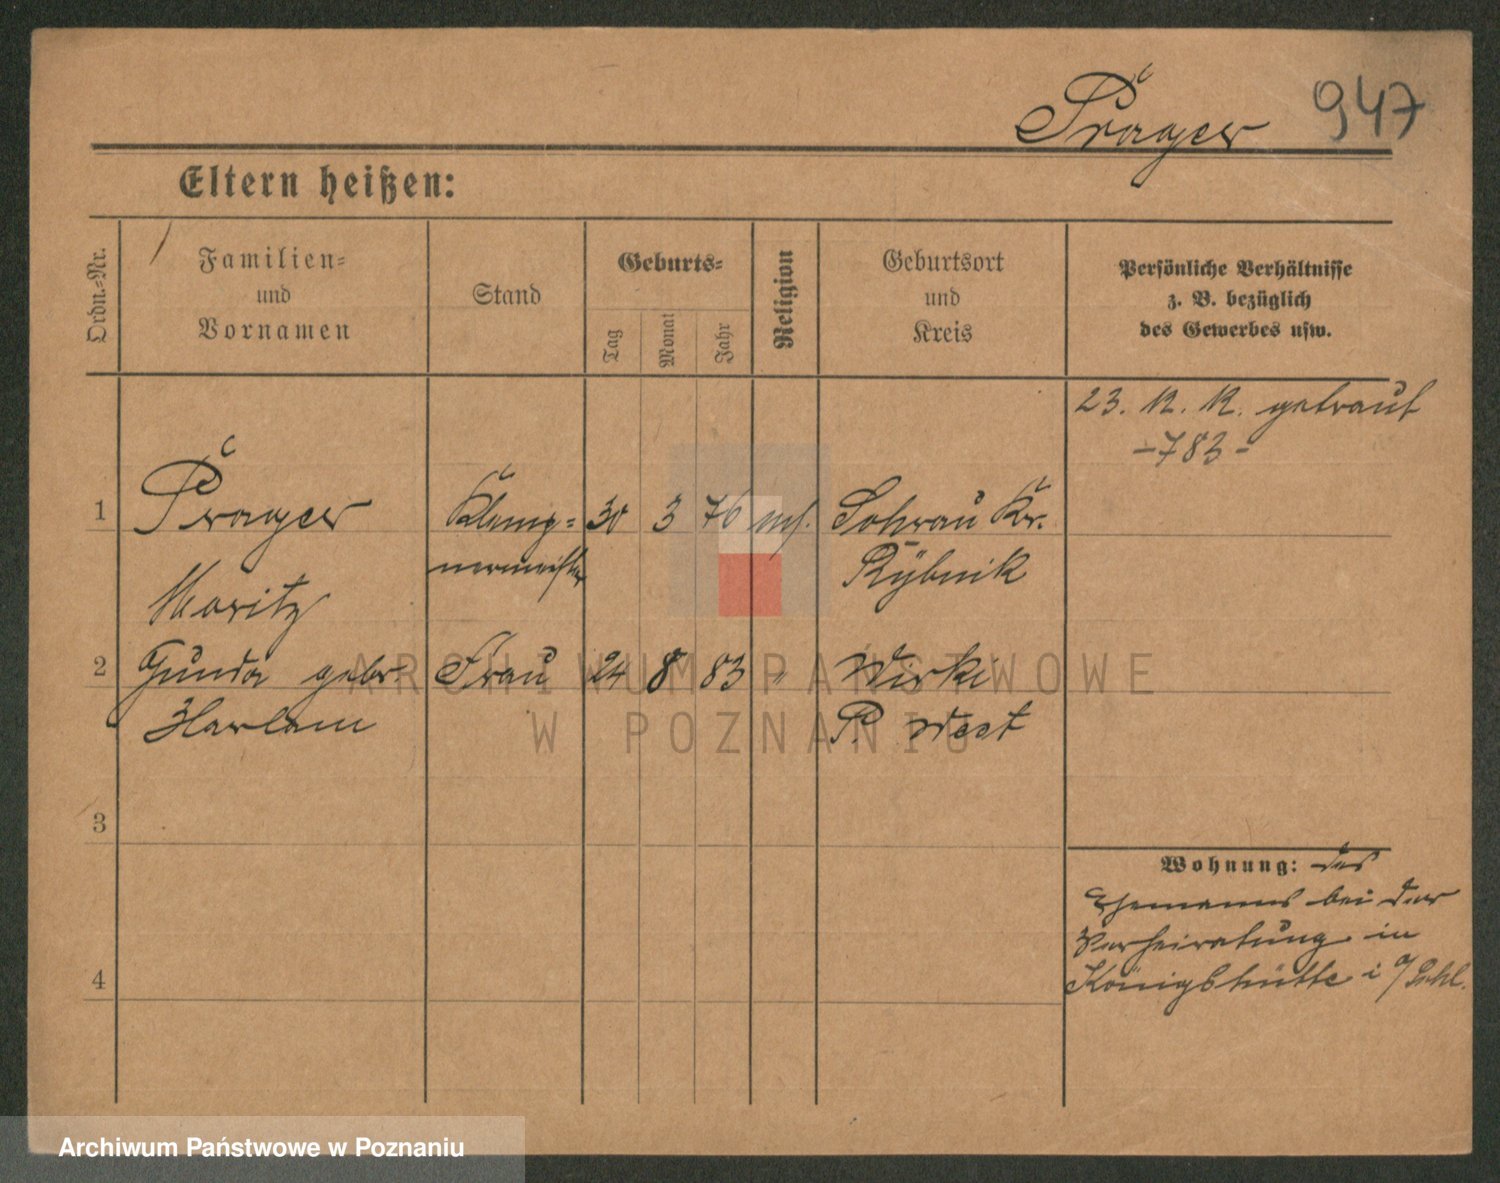 Prager 947
Eltern heißen:
Ordn.-Nr.
Familien-
und
Vornamen
Stand
Geburts-
Tag
Monat
Jahr
Religion
Geburtsort
und
Kreis
Persönliche Verhältnisse
z. B. bezüglich
des Gewerbes usw.
23. 12. 12. getraut
-783-
1 Prager Klemp= 30 3 76 mos. Sohrau Kr.
nermeister Rybnik
Moritz
2 Gunda gebr. Frau 24 8 83 " Wirki
Harlam P. West
3
Wohnung: des
Ehemanns bei der
Verheiratung in
4
Königshütte i O/Schl.
ARCHIWUM PAŃSTWOWE
W POZNANIU
Archiwum Państwowe w Poznaniu